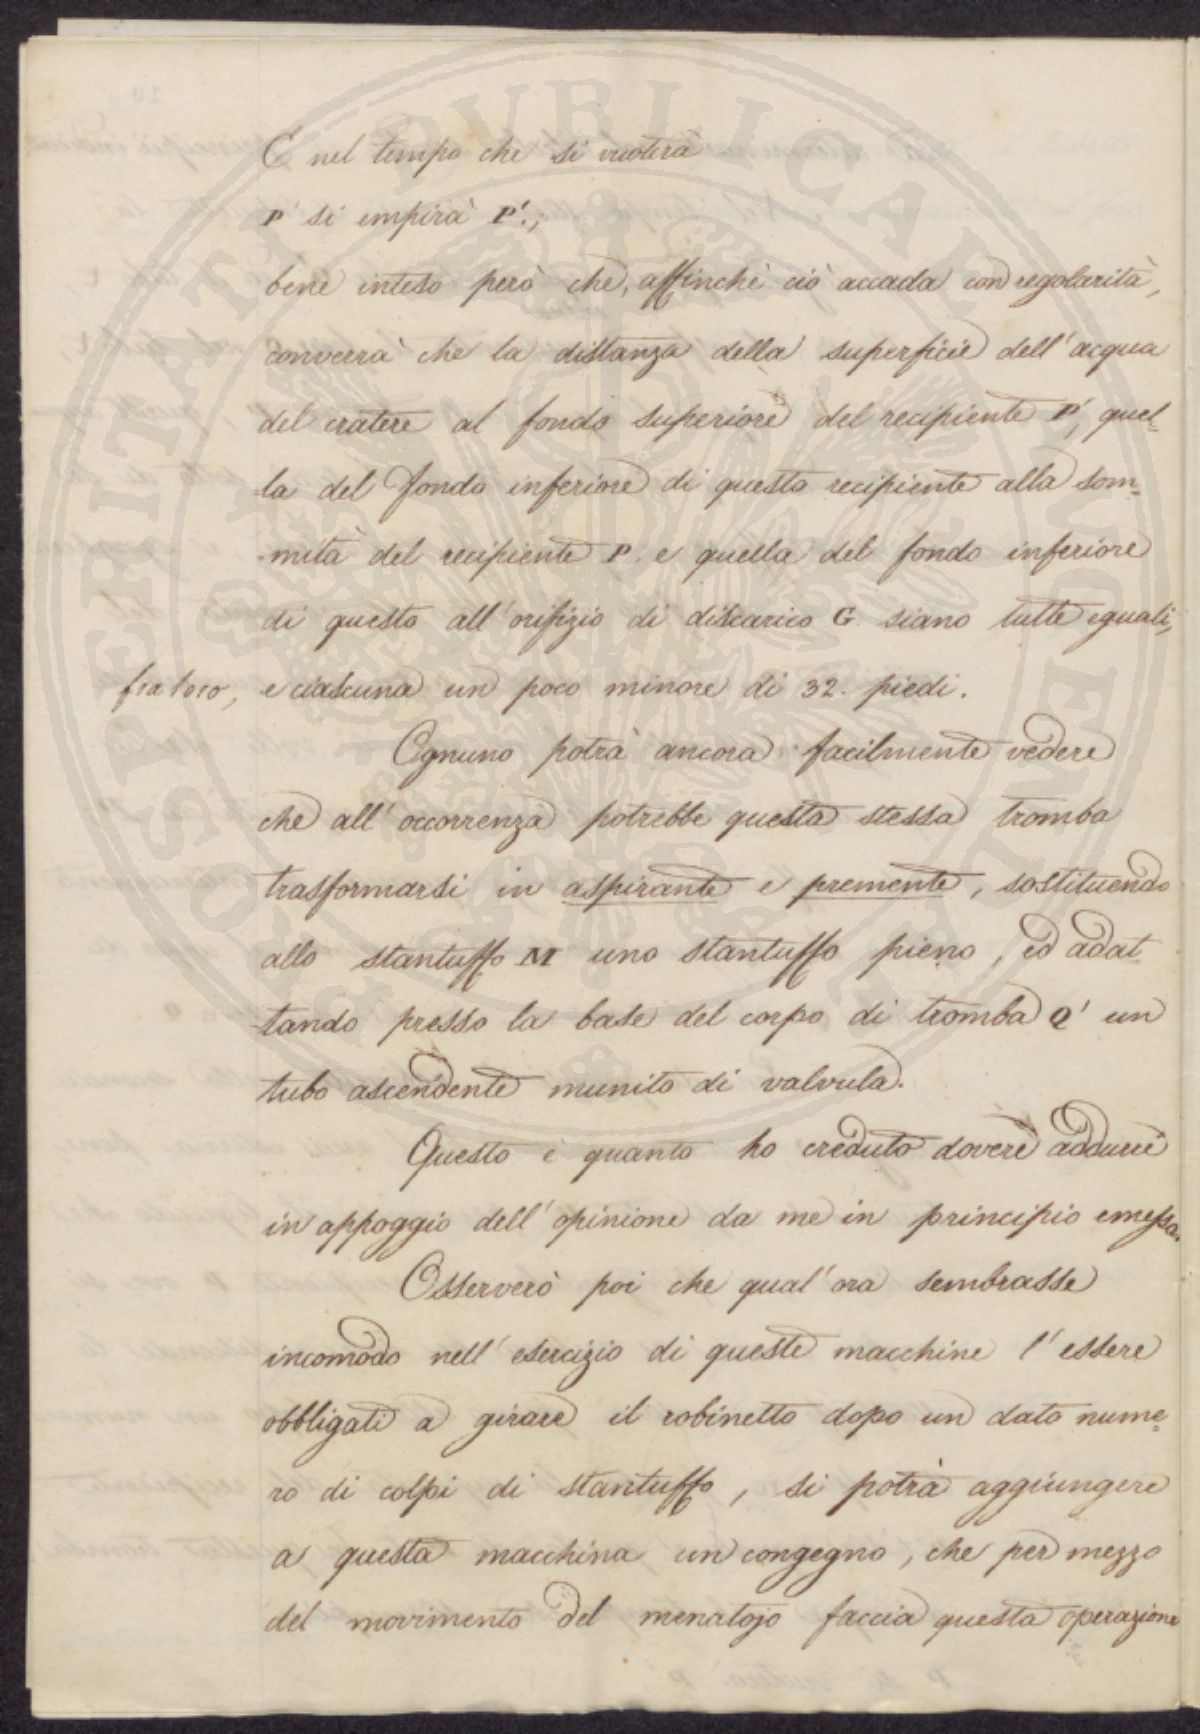 E nel tempo che si vuoterà
P si empirà P'.;
bene inteso però che, affinchè ciò accada con regolarità,
converrà che la distanza della superficie dell'acqua
del cratere al fondo superiore del recipiente P', quel-
la del fondo inferiore di questo recipiente alla som-
mità del recipiente P. e quella del fondo inferiore
di questo all'orifizio di discarico G. siano tutte eguali,
fra loro, e ciascuna un poco minore di 32. piedi.
Ognuno potrà ancora facilmente vedere
che all'occorrenza potrebbe questa stessa tromba
trasformarsi in aspirante e premente, sostituendo
allo stantuffo M uno stantuffo pieno, ed adat
tando presso la base del corpo di tromba Q' un
tubo ascendente munito di valvula.
Questo è quanto ho creduto dovere addurre
in appoggio dell'opinione da me in principio emessa.
Osserverò poi che qual'ora sembrasse
incomodo nell'esercizio di queste macchine l'essere
obbligati a girare il robinetto dopo un dato nume-
ro di colpi di stantuffo, si potrà aggiungere
a questa macchina un congegno, che per mezzo
del movimento del menatojo faccia questa operazione
PROSPERITATI PUBLICAE AUGENDAE